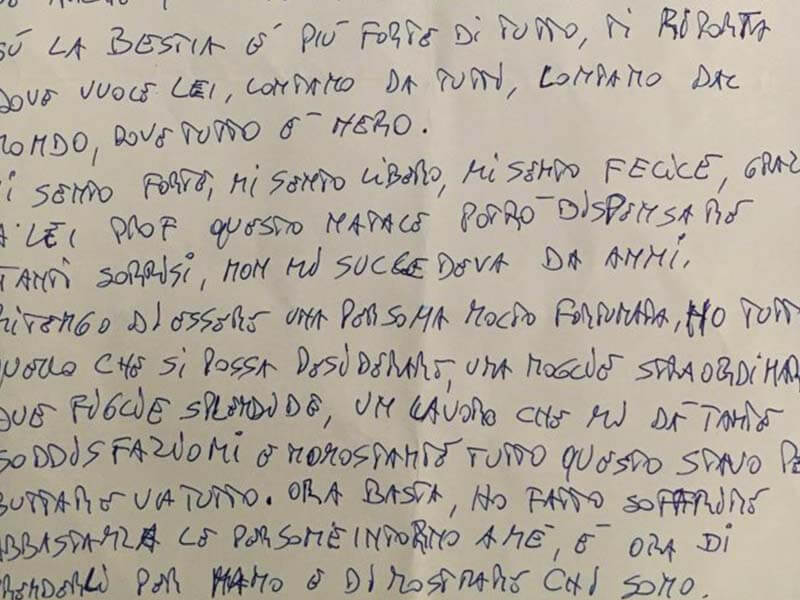 LA BESTIA È PIÙ FORTE DI TUTTO, TI RIPORTA
DOVE VUOLE LEI, LONTANO DA TUTTI, LONTANO DAL
MONDO, DOVE TUTTO È NERO.
MI SENTO FORTE, MI SENTO LIBERO, MI SENTO FELICE, GRAZ
A LEI PROF QUESTO NATALE POTRÒ DISPENSARE
TANTI SORRISI, NON MI SUCCEDEVA DA ANNI.
RITENGO DI ESSERE UNA PERSONA MOLTO FORTUNATA, HO TUTT
QUELLO CHE SI POSSA DESIDERARE, UNA MOGLIE STRAORDINAR
DUE FIGLIE SPLENDIDE, UN LAVORO CHE MI DÀ TANTE
SODDISFAZIONI E NONOSTANTE TUTTO QUESTO STAVO PE
BUTTARE VIA TUTTO. ORA BASTA, HO FATTO SOFFRIRE
ABBASTANZA LE PERSONE INTORNO A ME, È ORA DI
PRENDERLI PER MANO E DIMOSTRARE CHI SONO.